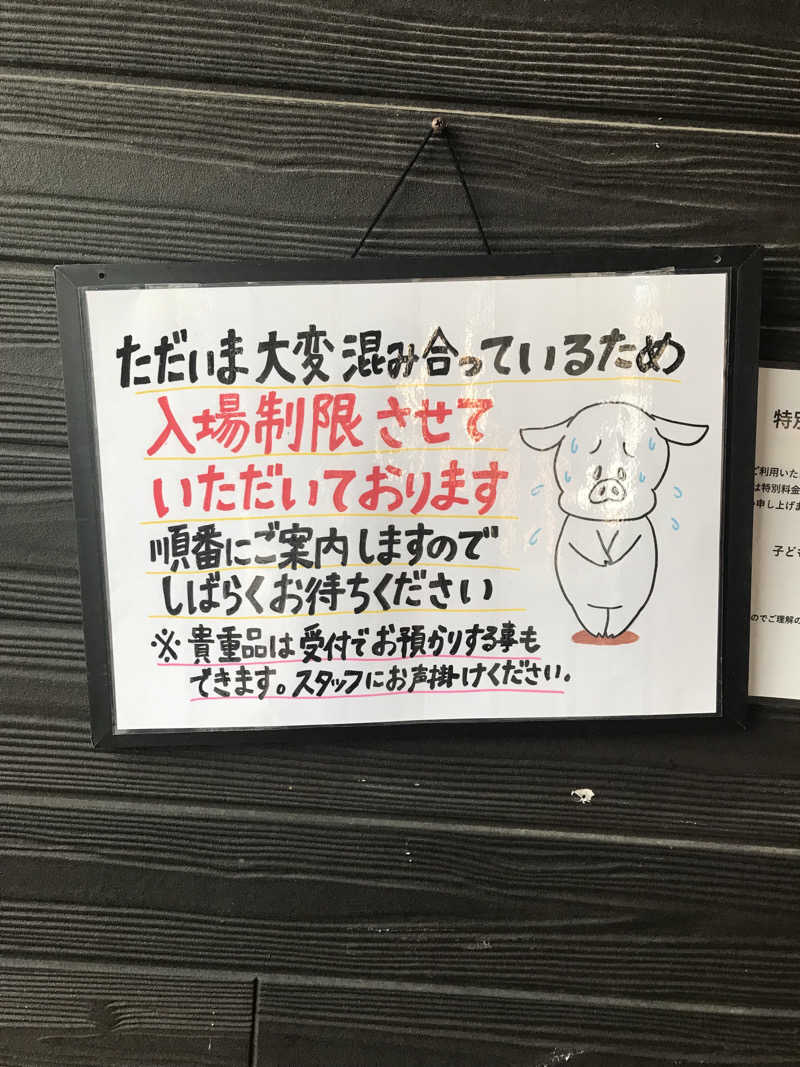 ただいま大変混み合っているため
入場制限させて
いただいております
順番にご案内しますので
しばらくお待ちください
※貴重品は受付でお預かりする事も
できます。スタッフにお声掛けください。
特別
ご利用いた
は特別料金
申し上げま
子ども
のでご理解の